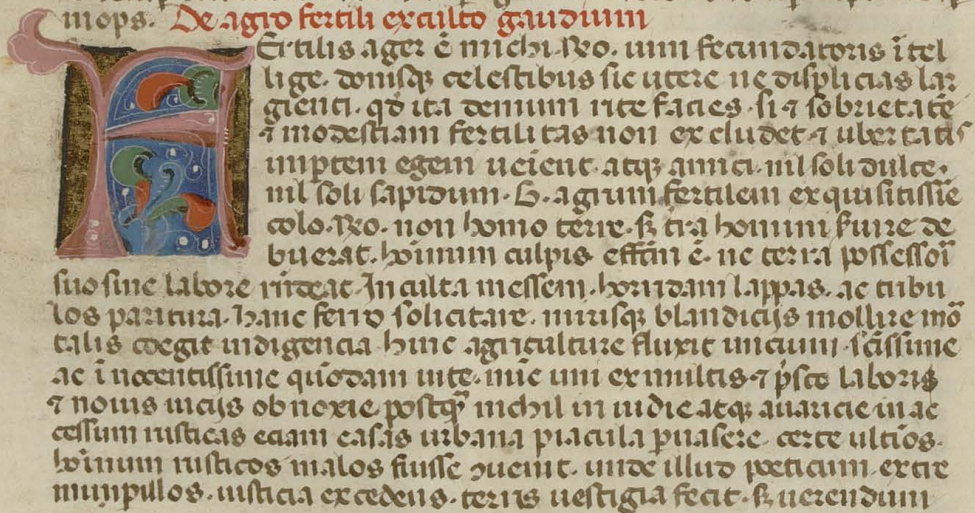 mops. De agro fertili exculto gaudium
Ertilis ager ē michi. Ro. uim fecundatoris ītel
lige. donisq celestibus sic utere ne displicias lar
gienti. qd ita demum rite facies. si ⁊ sobrietatē
⁊ modestiam fertilitas non excludet. ⁊ ubertatis
imptem egeni ueient. atq amici. nil soli dulce.
nil soli sapidum. G. agrum fertilem exquisitissīe
colo. Ro. non homo terre. sꝫ tra homini suire de
buerat. hoīnum culpis effcm ē. ne terra possessoī
suo sine labore rideat. Inculta messem. horridam lappas. ac tribu
los paritura. hanc ferro solicitare. nurisq blandicijs mollire mō
talis coegit indigencia hinc agriculture fluxit unicum. sc̄issime
ac īnocentissime quōdam uite. nūc uni ex multis. ⁊ p̄sco laboris
⁊ nouis uicijs obnoxie. postq̄ nichil in uidie atq auaricie in ac
cessum rusticas eciam casas urbana piacula puasere. certe ultīos.
hoīnum rusticos malos fuisse ɔuenit. unde illud poeticum. extre
mum pillos. iusticia excedens. terris uestigia fecit. sꝫ uerendum